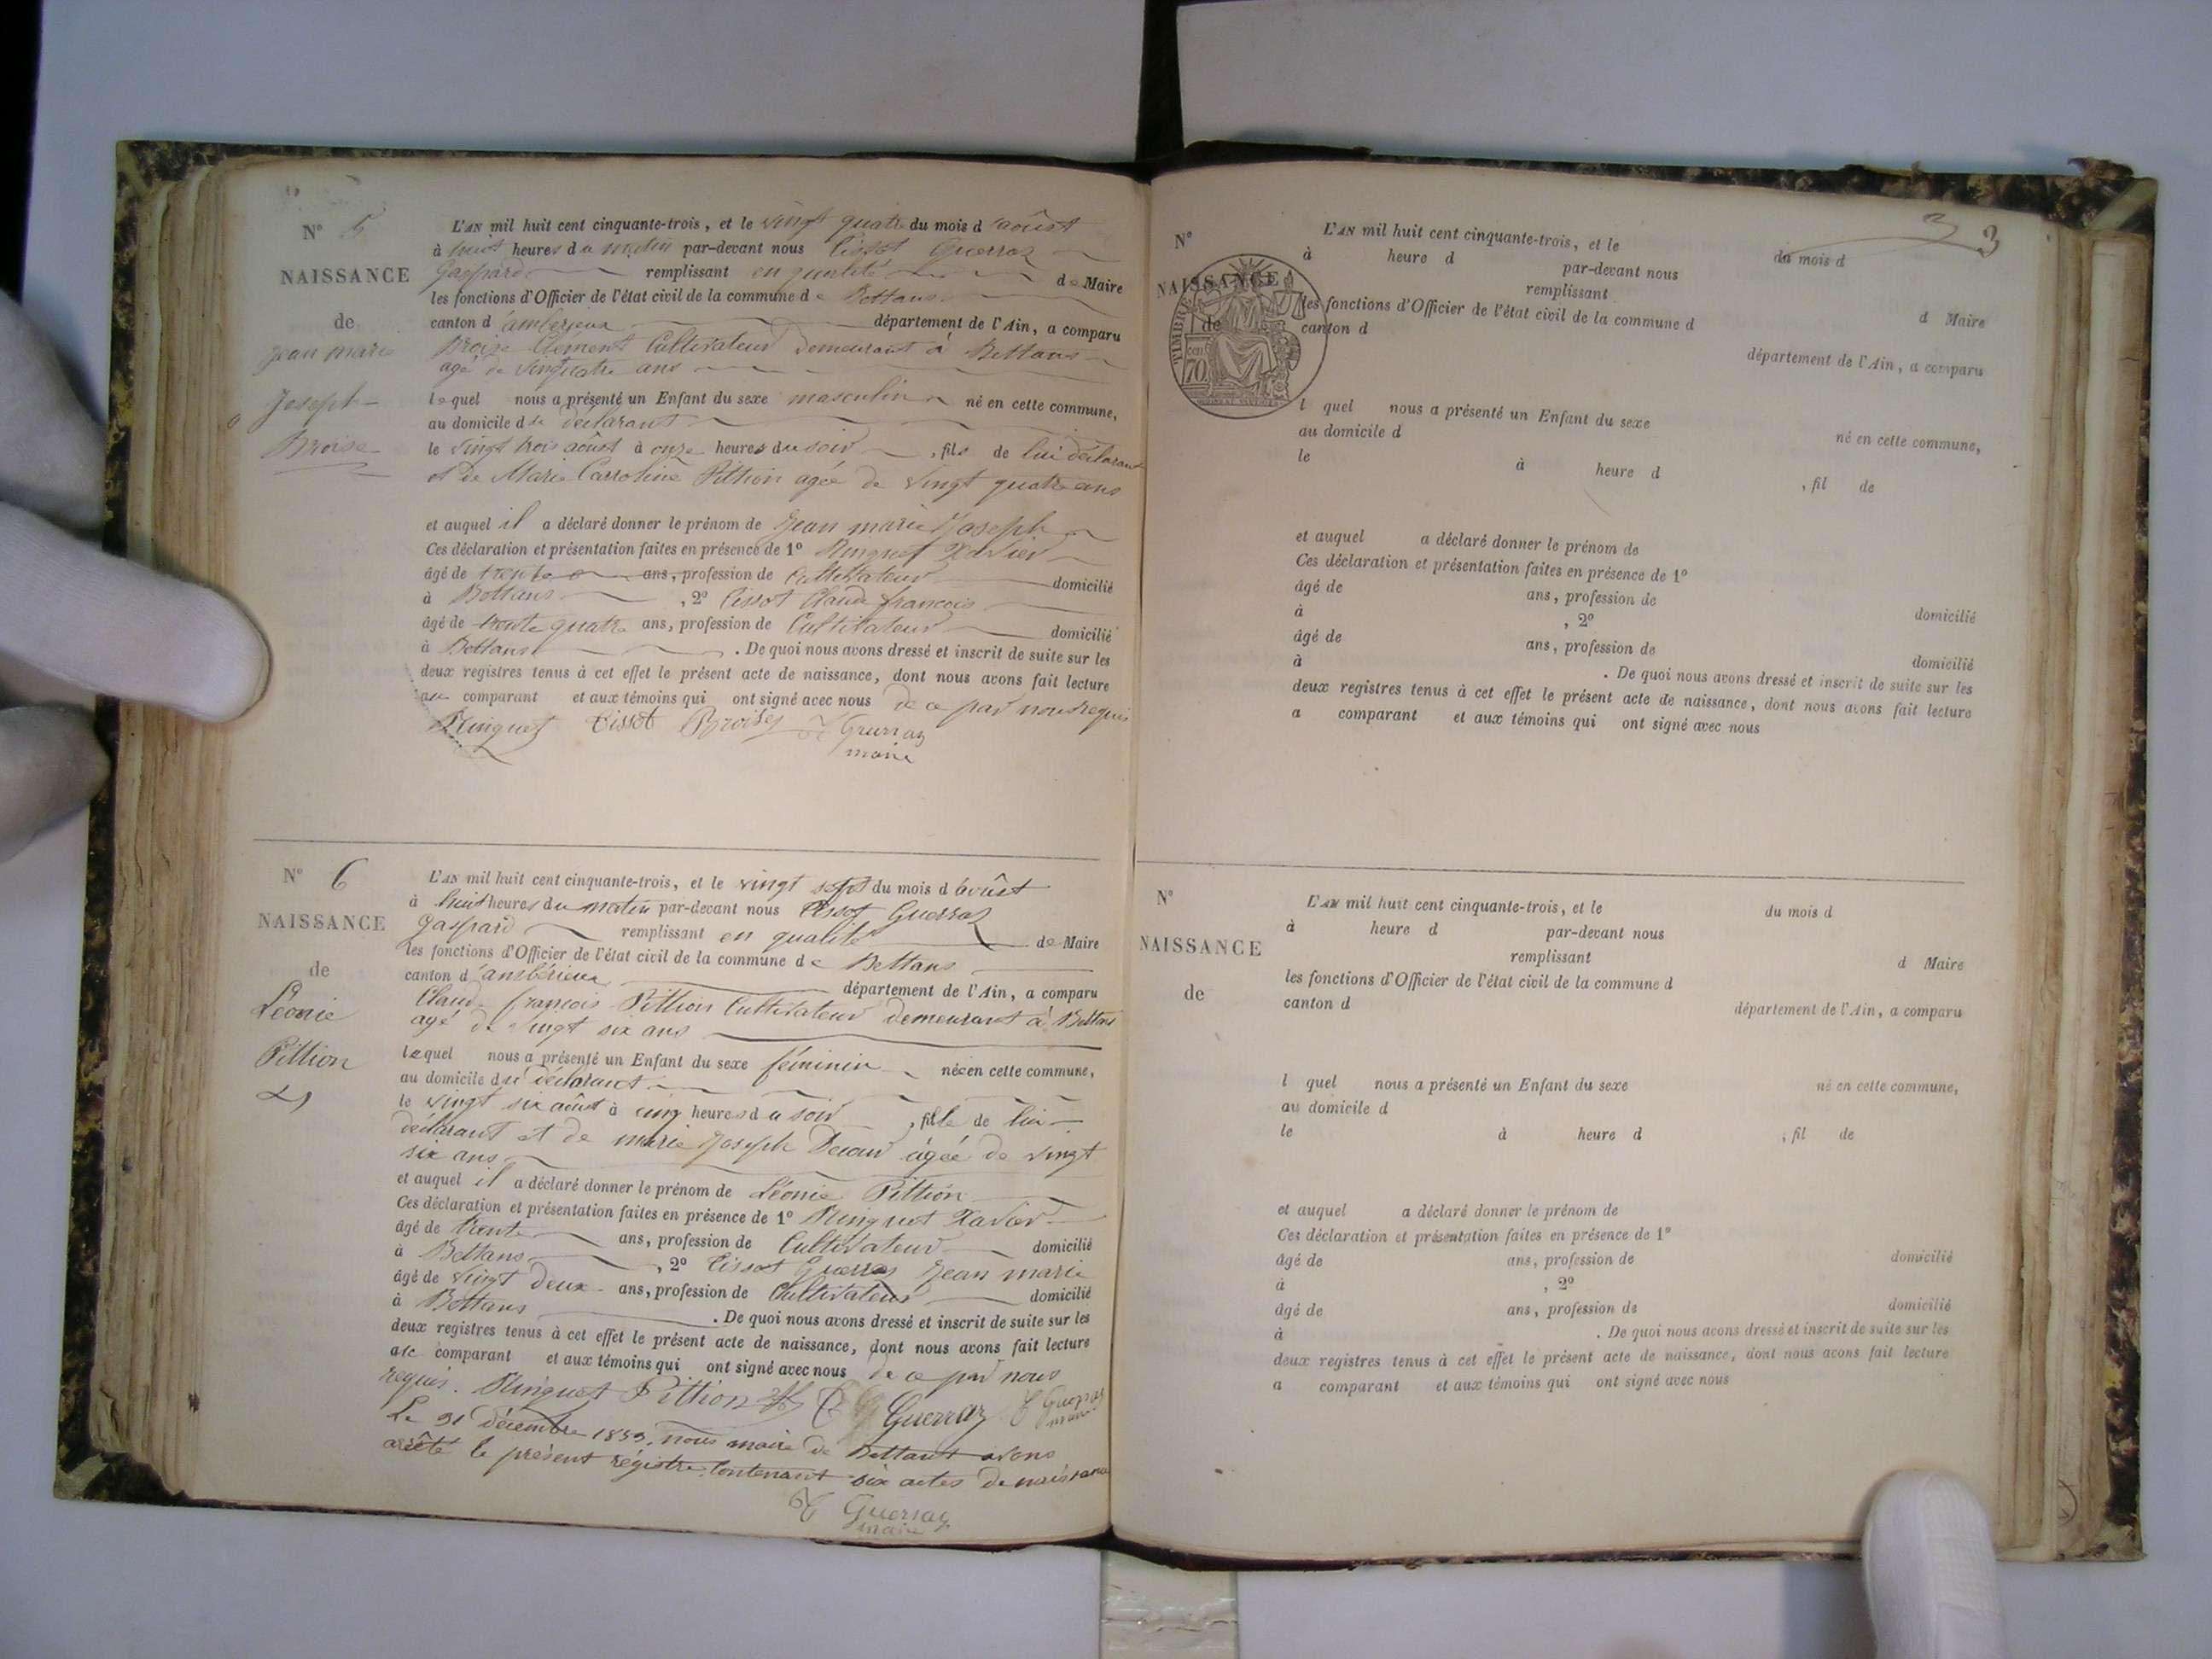 N° 5
NAISSANCE
de
Jean marie
Joseph
Broise
L'AN mil huit cent cinquante-trois, et le vingt quatre du mois d'août
à huit heures du matin par-devant nous Tissot Guerraz
Gaspard remplissant en qualité de Maire
les fonctions d'Officier de l'état civil de la commune de Bettans
canton d'ambérieux département de l'Ain, a comparu
Broise Clément Cultivateur demeurant à Bettans
agé de vingt quatre ans
lequel nous a présenté un Enfant du sexe masculin né en cette commune,
au domicile du déclarant
le vingt trois août à onze heures du soir, fils de lui déclarant
et de Marie Carroline Pittion agée de vingt quatre ans
et auquel il a déclaré donner le prénom de Jean marie Joseph
Ces déclaration et présentation faites en présence de 1° Ringuet Xavier
âgé de trente ans, profession de Cultivateur domicilié
à Bettans, 2° Tissot Claude françois
âgé de trente quatre ans, profession de Cultivateur domicilié
à Bettans. De quoi nous avons dressé et inscrit de suite sur les
deux registres tenus à cet effet le présent acte de naissance, dont nous avons fait lecture
au comparant et aux témoins qui ont signé avec nous de ce par nous requis
Ringuet Tissot Broise T Guerraz
maire
N° 6
NAISSANCE
de
Léonie
Pittion
L'AN mil huit cent cinquante-trois, et le vingt sept du mois d'août
à huit heures du matin par-devant nous Tissot Guerraz
Gaspard remplissant en qualité de Maire
les fonctions d'Officier de l'état civil de la commune de Bettans
canton d'ambérieux département de l'Ain, a comparu
Claude françois Pittion Cultivateur demeurant à Bettans
agé de vingt six ans
lequel nous a présenté un Enfant du sexe féminin née en cette commune,
au domicile du déclarant
le vingt six août à cinq heures du soir, fille de lui
déclarant et de marie Joseph agée de vingt
six ans
et auquel il a déclaré donner le prénom de Léonie Pittion
Ces déclaration et présentation faites en présence de 1° Ringuet Xavier
âgé de trente ans, profession de Cultivateur domicilié
à Bettans, 2° Tissot Guerraz Jean marie
âgé de vingt deux ans, profession de Cultivateur domicilié
à Bettans. De quoi nous avons dressé et inscrit de suite sur les
deux registres tenus à cet effet le présent acte de naissance, dont nous avons fait lecture
au comparant et aux témoins qui ont signé avec nous de ce par nous
requis. Ringuet Pittion Guerraz T Guerraz
maire
Le 31 décembre 1853, nous maire de Bettant avons
arrêté le présent régistre contenant six actes de naissance
T Guerraz
maire
3
N°
NAISSANCE
de
TIMBRE
70
L'AN mil huit cent cinquante-trois, et le du mois d
à heure d par-devant nous
remplissant d Maire
les fonctions d'Officier de l'état civil de la commune d
canton d département de l'Ain, a comparu
l quel nous a présenté un Enfant du sexe né en cette commune,
au domicile d
le à heure d, fil de
et auquel a déclaré donner le prénom de
Ces déclaration et présentation faites en présence de 1°
âgé de ans, profession de domicilié
à, 2°
âgé de ans, profession de domicilié
à. De quoi nous avons dressé et inscrit de suite sur les
deux registres tenus à cet effet le présent acte de naissance, dont nous avons fait lecture
a comparant et aux témoins qui ont signé avec nous
N°
NAISSANCE
de
L'AN mil huit cent cinquante-trois, et le du mois d
à heure d par-devant nous
remplissant d Maire
les fonctions d'Officier de l'état civil de la commune d
canton d département de l'Ain, a comparu
l quel nous a présenté un Enfant du sexe né en cette commune,
au domicile d
le à heure d, fil de
et auquel a déclaré donner le prénom de
Ces déclaration et présentation faites en présence de 1°
âgé de ans, profession de domicilié
à, 2°
âgé de ans, profession de domicilié
à. De quoi nous avons dressé et inscrit de suite sur les
deux registres tenus à cet effet le présent acte de naissance, dont nous avons fait lecture
a comparant et aux témoins qui ont signé avec nous